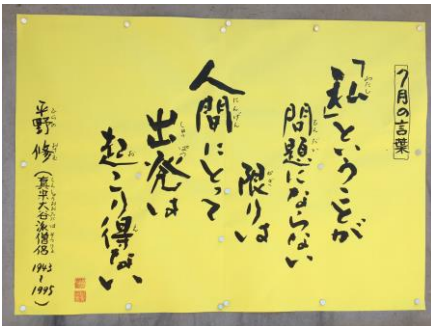 7月の言葉
「私」ということが
問題にならない
限りは
人間にとって
出発は
起こり得ない
平野 修 (真宗大谷派僧侶 1943~1995)